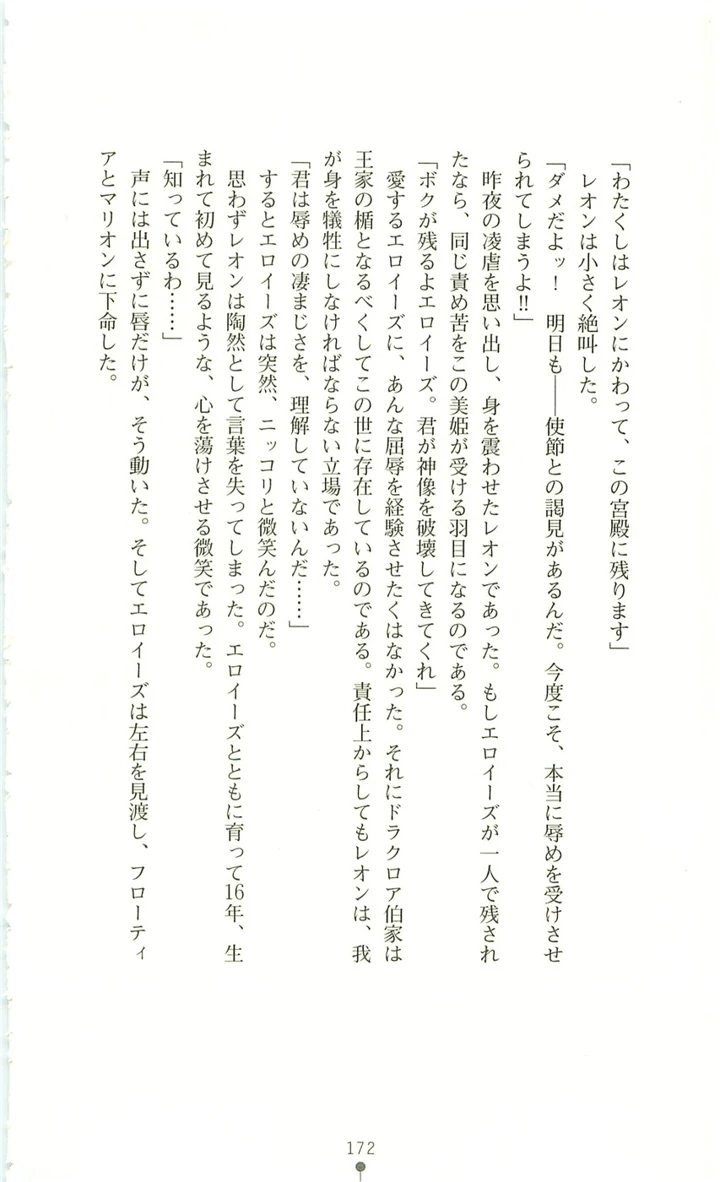 「わたくしはレオンにかわって、この宮殿に残ります」
　レオンは小さく絶叫した。
「ダメだよッ！　明日も――使節との謁見があるんだ。今度こそ、本当に辱めを受けさせ
られてしまうよ!!」
　昨夜の凌虐を思い出し、身を震わせたレオンであった。もしエロイーズが一人で残され
たなら、同じ責め苦をこの美姫が受ける羽目になるのである。
「ボクが残るよエロイーズ。君が神像を破壊してきてくれ」
　愛するエロイーズに、あんな屈辱を経験させたくはなかった。それにドラクロア伯家は
王家の楯となるべくしてこの世に存在しているのである。責任上からしてもレオンは、我
が身を犠牲にしなければならない立場であった。
「君は辱めの凄まじさを、理解していないんだ……」
　するとエロイーズは突然、ニッコリと微笑んだのだ。
　思わずレオンは陶然として言葉を失ってしまった。エロイーズとともに育って16年、生
まれて初めて見るような、心を蕩けさせる微笑であった。
「知っているわ……」
　声には出さずに唇だけが、そう動いた。そしてエロイーズは左右を見渡し、フローティ
アとマリオンに下命した。
172